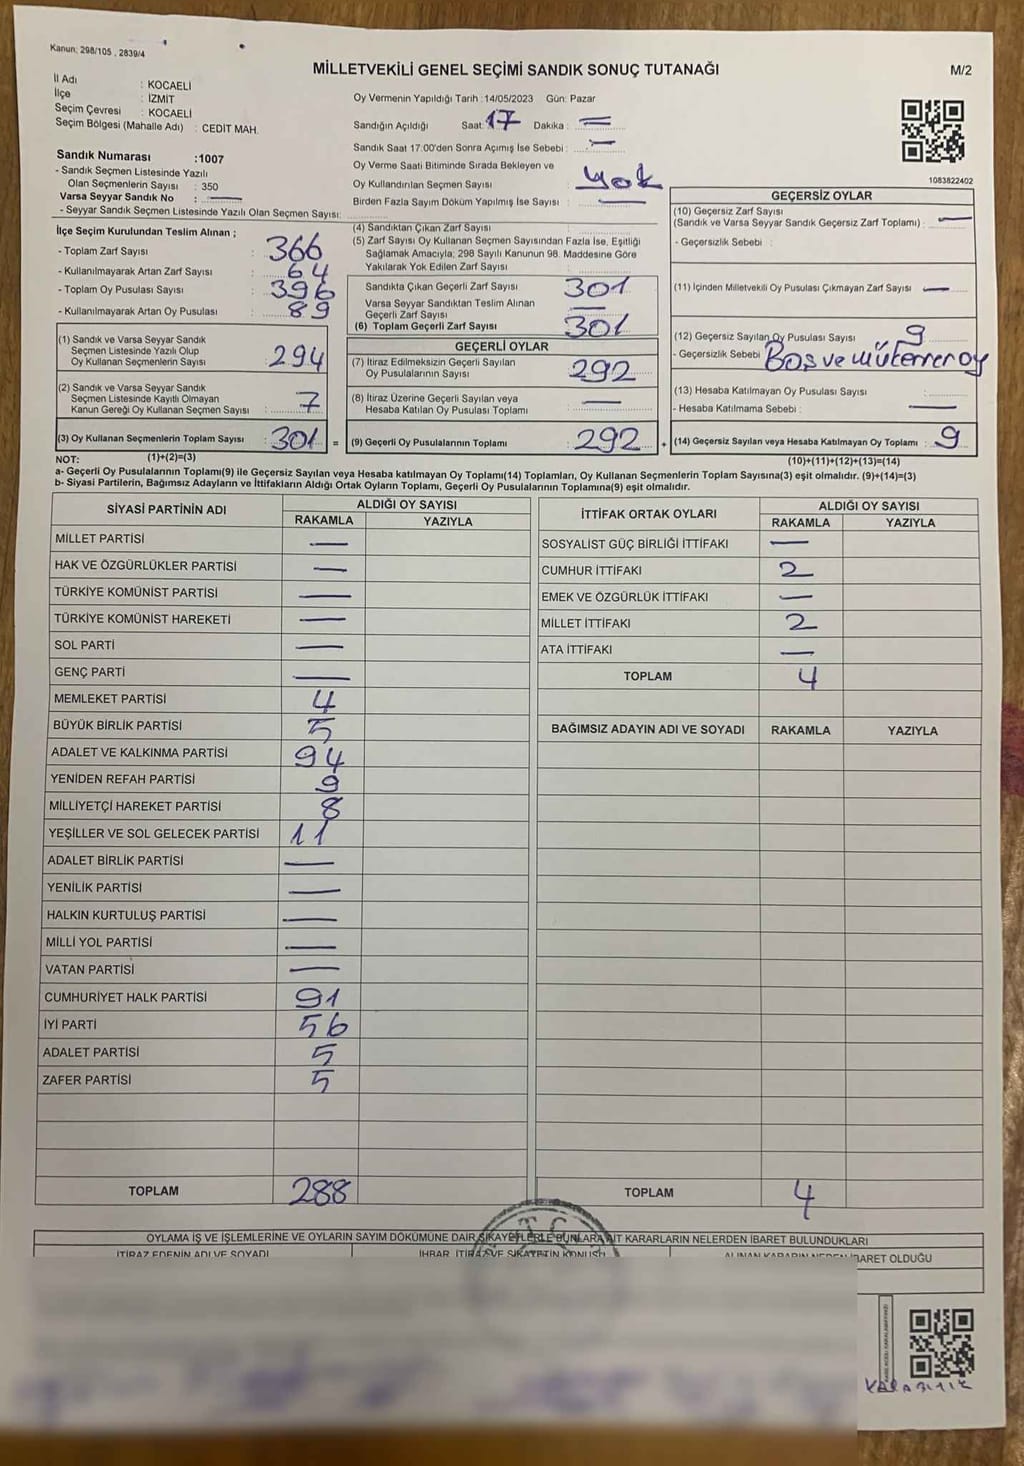 Kanun: 298/105 , 2839/4
MİLLETVEKİLİ GENEL SEÇİMİ SANDIK SONUÇ TUTANAĞI
M/2
İl Adı : KOCAELİ
İlçe : İZMİT
Seçim Çevresi : KOCAELİ
Seçim Bölgesi (Mahalle Adı) : CEDİT MAH.
Sandık Numarası :1007
- Sandık Seçmen Listesinde Yazılı
Olan Seçmenlerin Sayısı : 350
Varsa Seyyar Sandık No : —
- Seyyar Sandık Seçmen Listesinde Yazılı Olan Seçmen Sayısı:
Oy Vermenin Yapıldığı Tarih :14/05/2023 Gün: Pazar
Sandığın Açıldığı Saat: 17 Dakika : =
Sandık Saat 17:00'den Sonra Açımış İse Sebebi : —
Oy Verme Saati Bitiminde Sırada Bekleyen ve
Oy Kullandırılan Seçmen Sayısı : Yok
Birden Fazla Sayım Döküm Yapılmış İse Sayısı : —
1083822402
İlçe Seçim Kurulundan Teslim Alınan ;
- Toplam Zarf Sayısı : 366
- Kullanılmayarak Artan Zarf Sayısı : 64
- Toplam Oy Pusulası Sayısı : 396
- Kullanılmayarak Artan Oy Pusulası : 89
(1) Sandık ve Varsa Seyyar Sandık
Seçmen Listesinde Yazılı Olup
Oy Kullanan Seçmenlerin Sayısı : 294
(2) Sandık ve Varsa Seyyar Sandık
Seçmen Listesinde Kayıtlı Olmayan
Kanun Gereği Oy Kullanan Seçmen Sayısı : 7
(3) Oy Kullanan Seçmenlerin Toplam Sayısı : 301 =
(4) Sandıktan Çıkan Zarf Sayısı :
(5) Zarf Sayısı Oy Kullanan Seçmen Sayısından Fazla İse, Eşitliği
Sağlamak Amacıyla; 298 Sayılı Kanunun 98. Maddesine Göre
Yakılarak Yok Edilen Zarf Sayısı :
Sandıkta Çıkan Geçerli Zarf Sayısı : 301
Varsa Seyyar Sandıktan Teslim Alınan
Geçerli Zarf Sayısı : —
(6) Toplam Geçerli Zarf Sayısı : 301
GEÇERLİ OYLAR
(7) İtiraz Edilmeksizin Geçerli Sayılan
Oy Pusulalarının Sayısı : 292
(8) İtiraz Üzerine Geçerli Sayılan veya
Hesaba Katılan Oy Pusulası Toplamı : —
(9) Geçerli Oy Pusulalarının Toplamı : 292 +
GEÇERSİZ OYLAR
(10) Geçersiz Zarf Sayısı
(Sandık ve Varsa Seyyar Sandık Geçersiz Zarf Toplamı) : —
- Geçersizlik Sebebi :
(11) İçinden Milletvekili Oy Pusulası Çıkmayan Zarf Sayısı : —
(12) Geçersiz Sayılan Oy Pusulası Sayısı : 9
- Geçersizlik Sebebi : Boş ve mükerrer oy
(13) Hesaba Katılmayan Oy Pusulası Sayısı :
- Hesaba Katılmama Sebebi : —
(14) Geçersiz Sayılan veya Hesaba Katılmayan Oy Toplamı : 9
NOT: (1)+(2)=(3) (10)+(11)+(12)+(13)=(14)
a- Geçerli Oy Pusulalarının Toplamı(9) ile Geçersiz Sayılan veya Hesaba katılmayan Oy Toplamı(14) Toplamları, Oy Kullanan Seçmenlerin Toplam Sayısına(3) eşit olmalıdır. (9)+(14)=(3)
b- Siyasi Partilerin, Bağımsız Adayların ve İttifakların Aldığı Ortak Oyların Toplamı, Geçerli Oy Pusulalarının Toplamına(9) eşit olmalıdır.
SİYASİ PARTİNİN ADI ALDIĞI OY SAYISI
RAKAMLA YAZIYLA
MİLLET PARTİSİ —
HAK VE ÖZGÜRLÜKLER PARTİSİ —
TÜRKİYE KOMÜNİST PARTİSİ —
TÜRKİYE KOMÜNİST HAREKETİ —
SOL PARTİ —
GENÇ PARTİ —
MEMLEKET PARTİSİ 4
BÜYÜK BİRLİK PARTİSİ 5
ADALET VE KALKINMA PARTİSİ 94
YENİDEN REFAH PARTİSİ 9
MİLLİYETÇİ HAREKET PARTİSİ 8
YEŞİLLER VE SOL GELECEK PARTİSİ 11
ADALET BİRLİK PARTİSİ —
YENİLİK PARTİSİ —
HALKIN KURTULUŞ PARTİSİ —
MİLLİ YOL PARTİSİ —
VATAN PARTİSİ —
CUMHURİYET HALK PARTİSİ 91
İYİ PARTİ 56
ADALET PARTİSİ 5
ZAFER PARTİSİ 5
TOPLAM 288
İTTİFAK ORTAK OYLARI ALDIĞI OY SAYISI
RAKAMLA YAZIYLA
SOSYALİST GÜÇ BİRLİĞİ İTTİFAKI —
CUMHUR İTTİFAKI 2
EMEK VE ÖZGÜRLÜK İTTİFAKI —
MİLLET İTTİFAKI 2
ATA İTTİFAKI —
TOPLAM 4
BAĞIMSIZ ADAYIN ADI VE SOYADI RAKAMLA YAZIYLA
TOPLAM 4
T.C.
OYLAMA İŞ VE İŞLEMLERİNE VE OYLARIN SAYIM DÖKÜMÜNE DAİR ŞİKAYETLERLE BUNLARA AİT KARARLARIN NELERDEN İBARET BULUNDUKLARI
İTİRAZ EDENİN ADI VE SOYADI İHBAR, İTİRAZ VE ŞİKAYETİN KONUSU ALINAN KARARIN NEDEN İBARET OLDUĞU